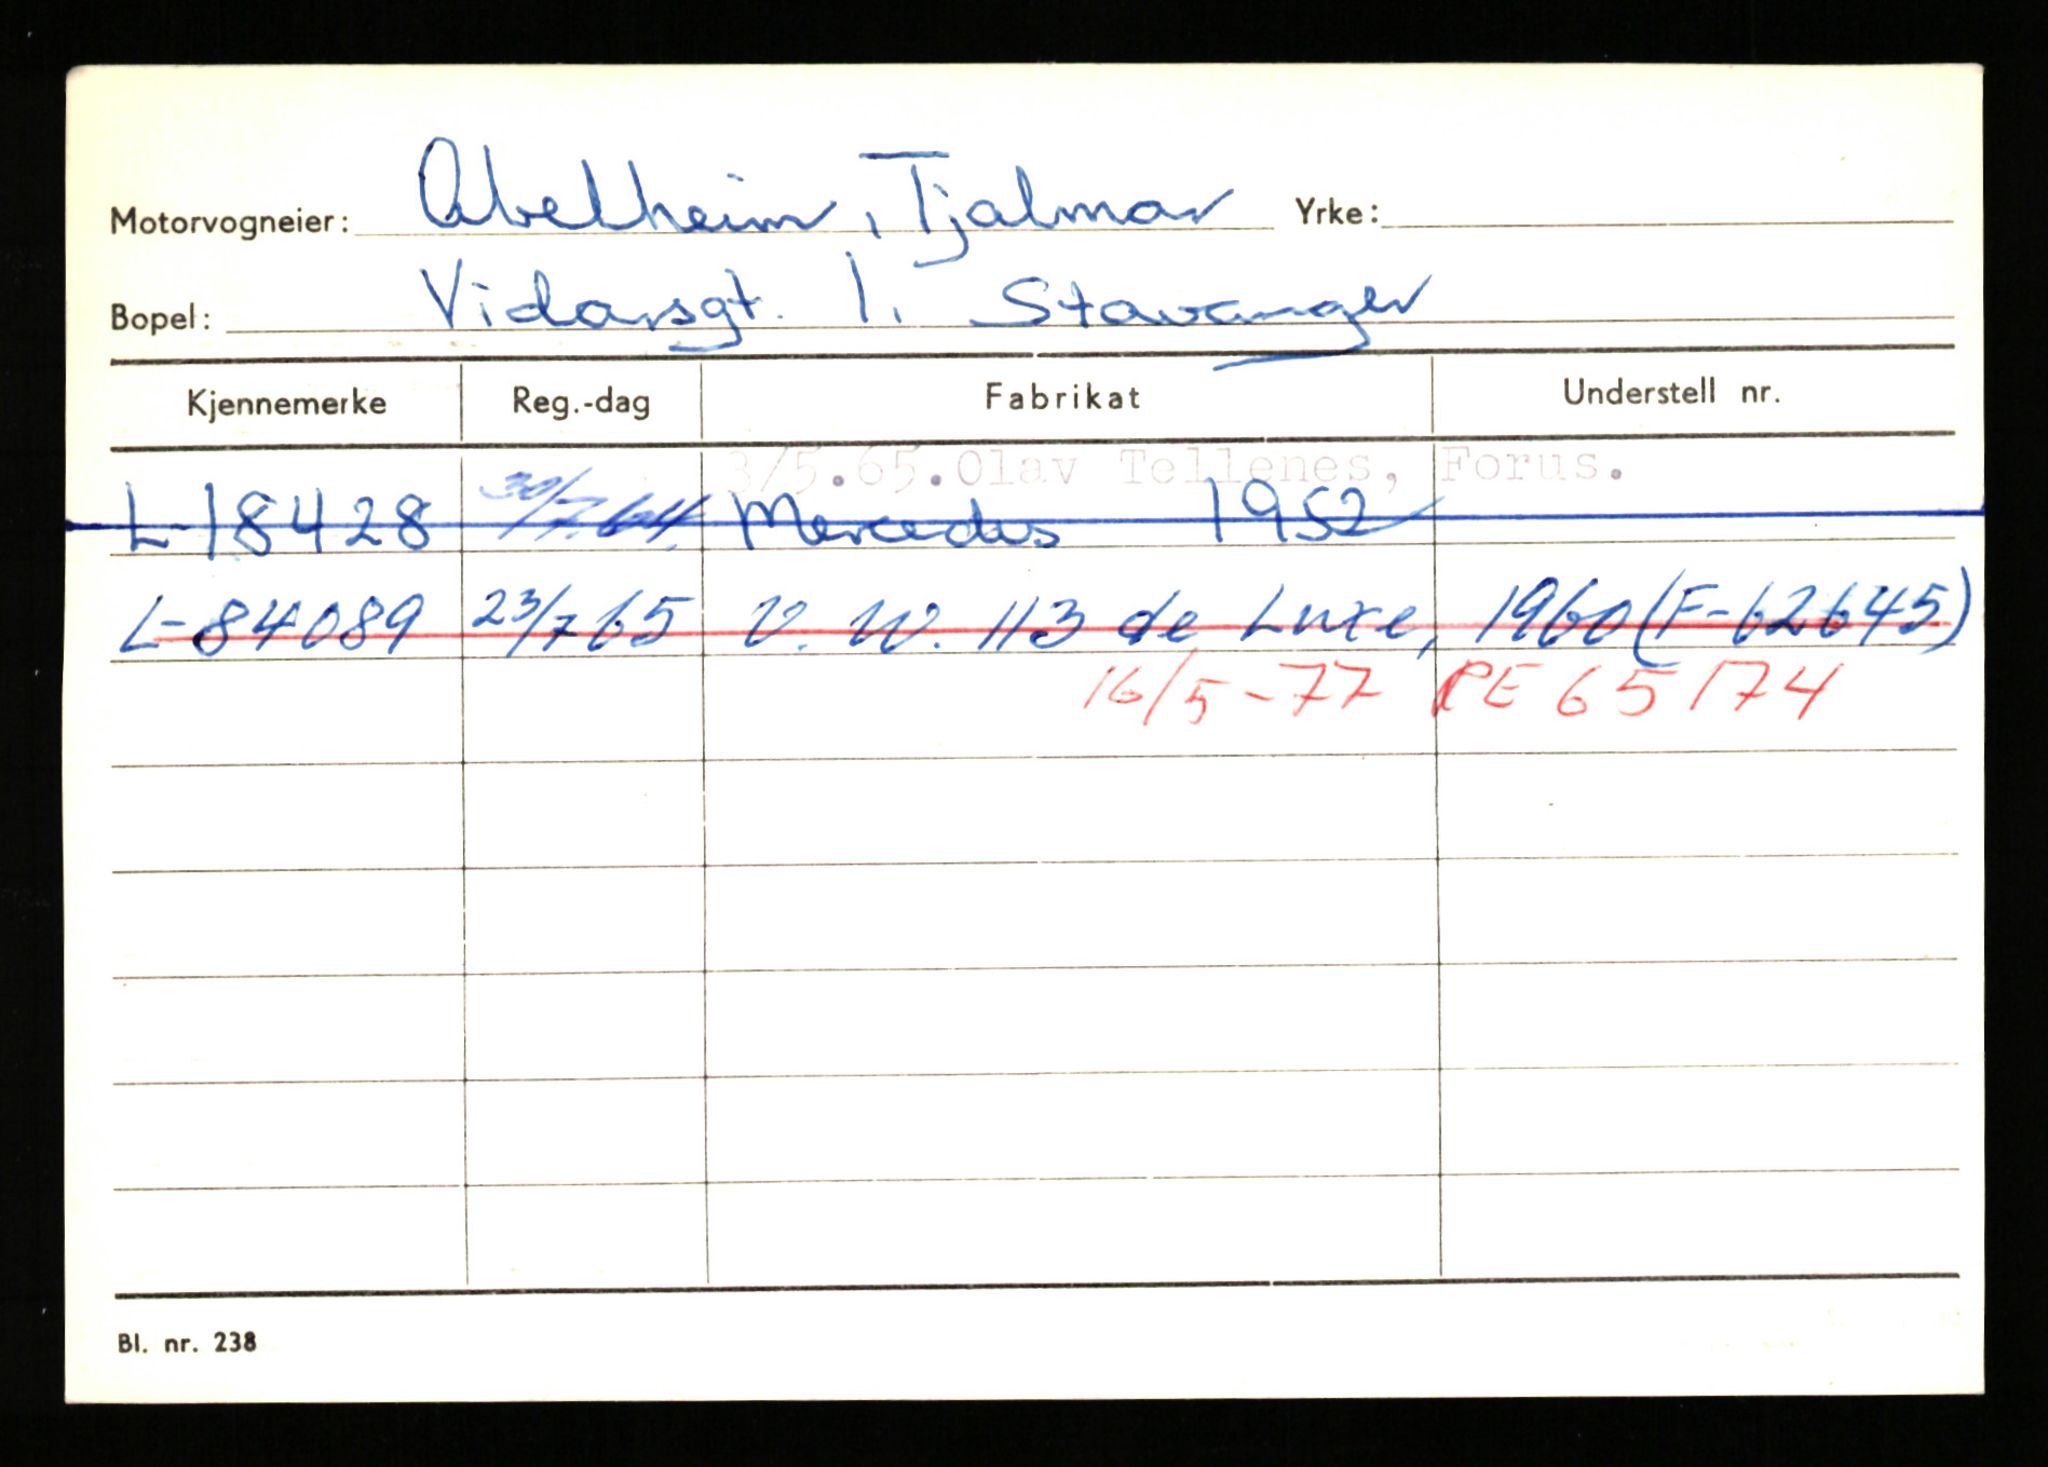 Motorvogneier: Abelheim, Tjalmar Yrke:
Bopel: Vidarsgt. 1. Stavanger
Kjennemerke Reg.-dag Fabrikat Understell nr.
3/5.65.Olav Tellenes, Forus.
L-18428 30/7.64. Mercedes 1952
L-84089 23/7 65 V.W. 113 de Luxe, 1960 (F-62645)
16/5-77 PE 65174
Bl. nr. 238